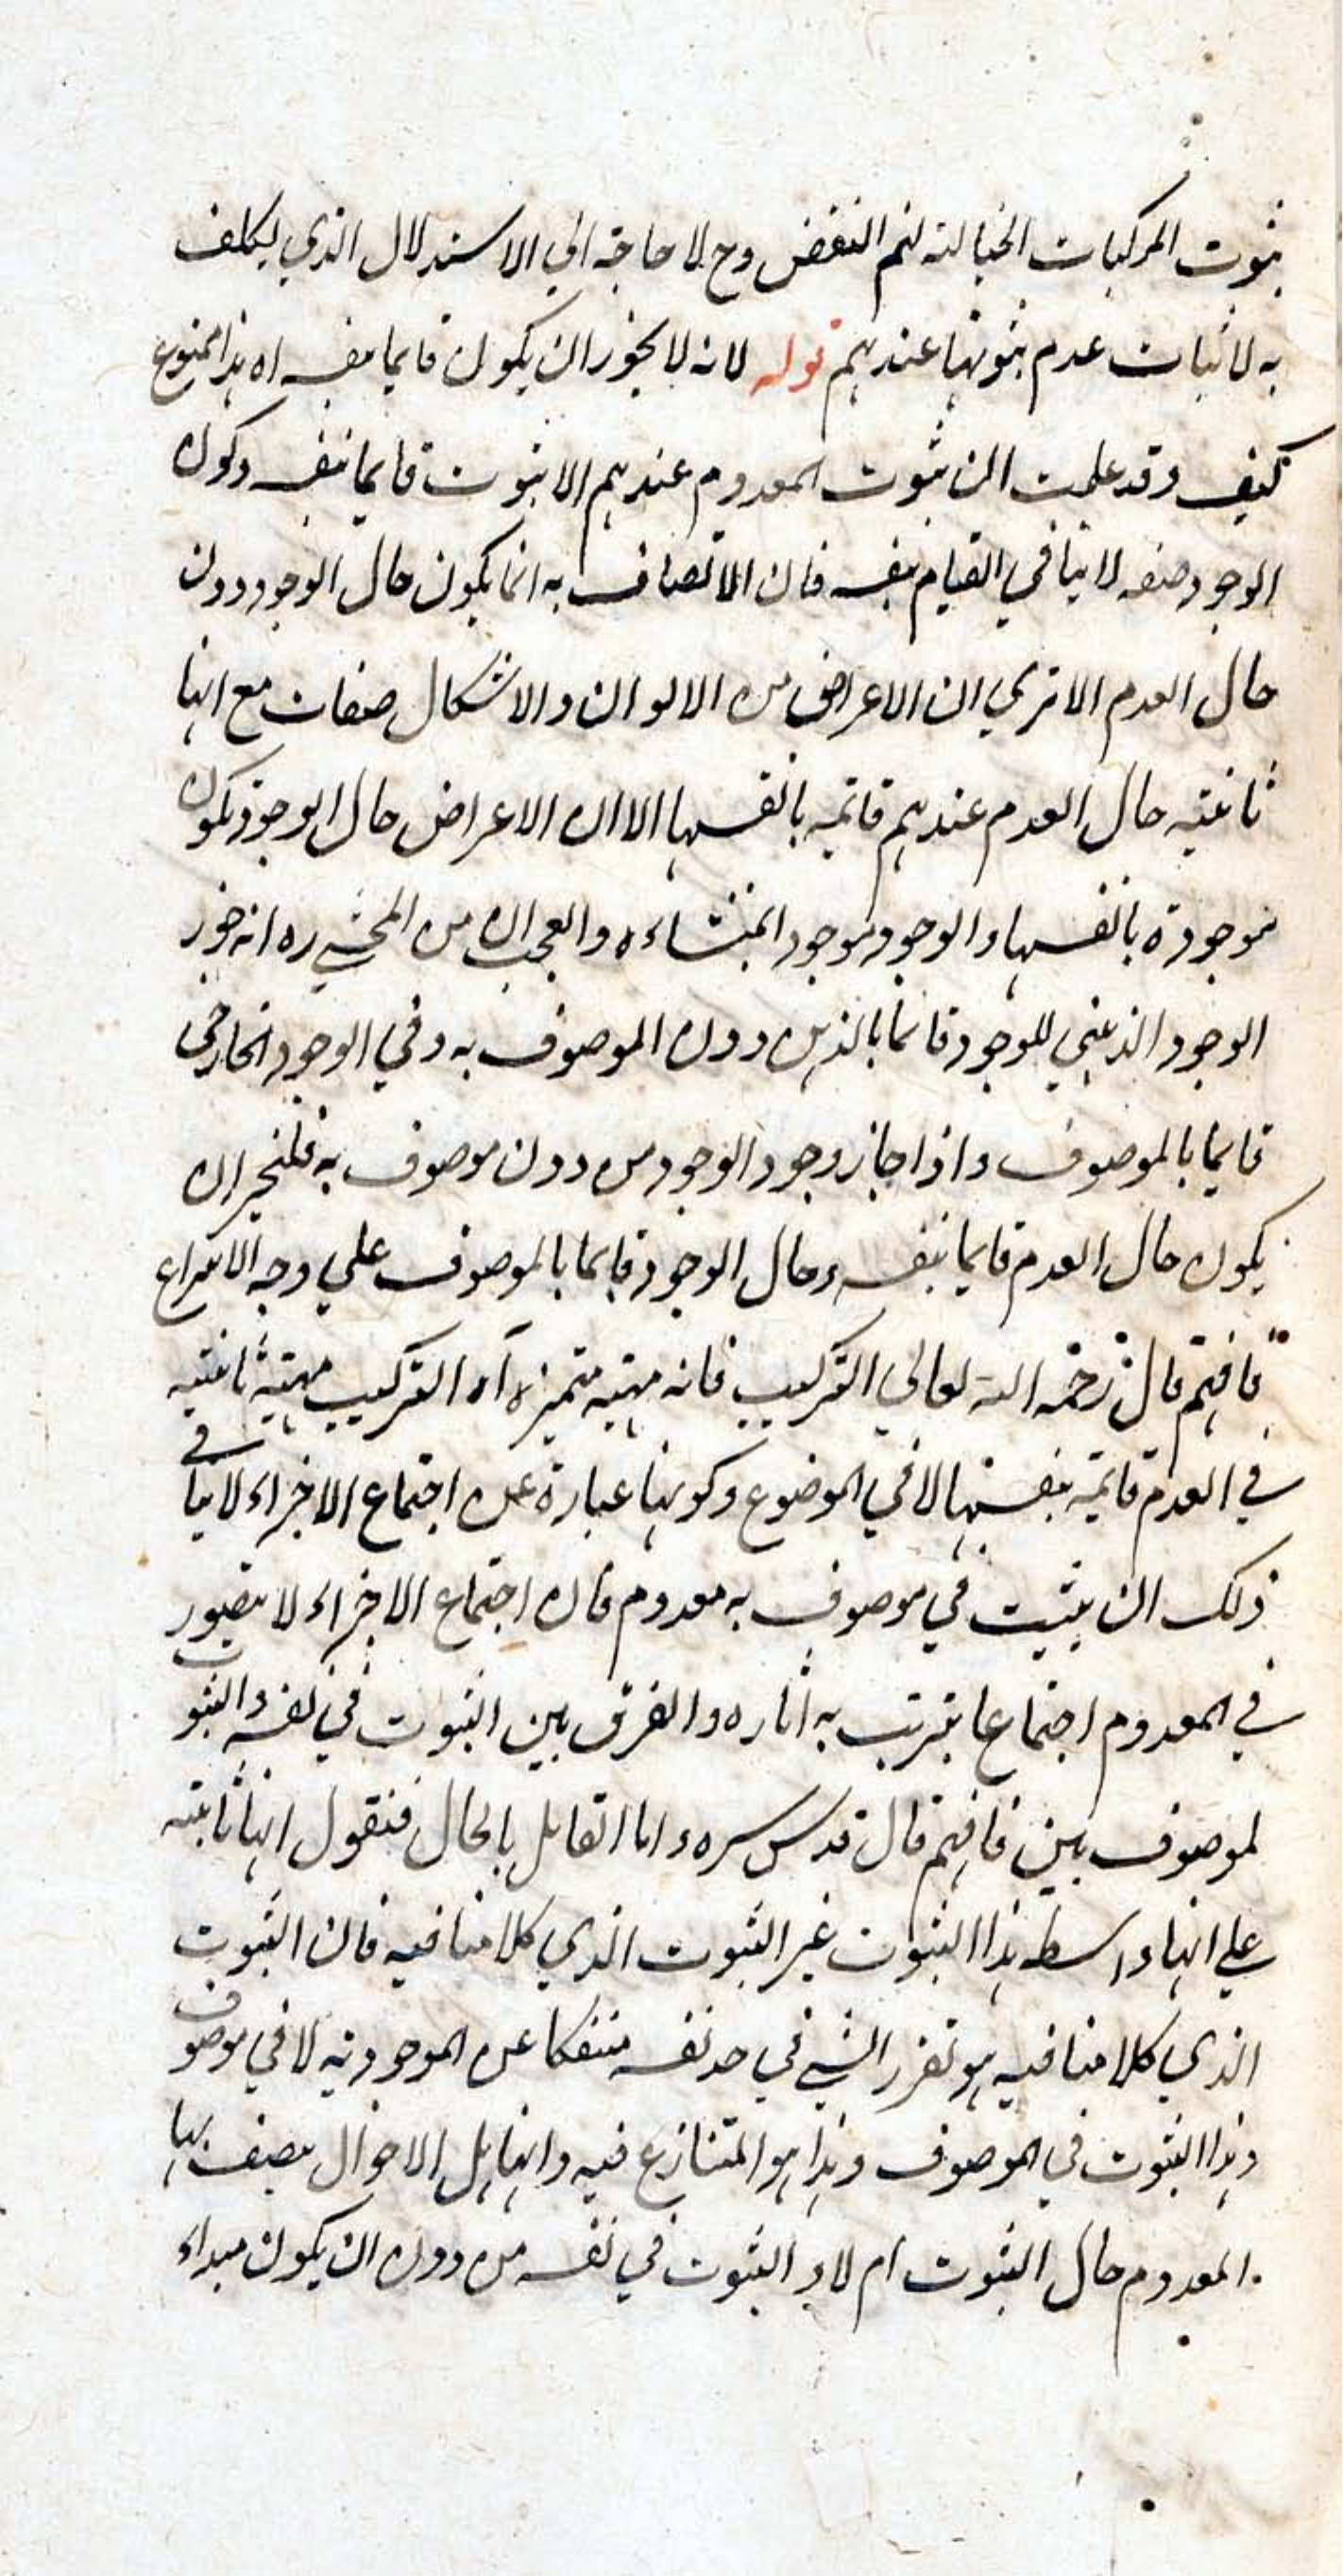 بثبوت المركبات الخيالية لتم النقض وح لا حاجة الي الاستدلال الذي تكلف
به لاثبات عدم ثبوتها عندهم قوله لانه لا يجوز ان يكون قايما بنفسه اه هذا ممنوع
كيف وقد علمت ان ثبوت المعدوم عندهم الا ثبوت قايما بنفسه وكون
الوجود صفه لا ينافي القيام بنفسه فان الاتصاف به انما يكون حال الوجود دون
حال العدم الا تري ان الاعراض من الالوان والاشكال صفات مع انها
ثابتة حال العدم عندهم قائمة بانفسها الا ان الاعراض حال الوجود تكون
موجودة بانفسها والوجود موجود بمنشاءه والعجب ان من المحشي ره انه جوز
الوجود الذهني للوجود قائما بالذهن دون الموصوف به وفي الوجود الخارجي
قايما بالموصوف واذا جاز وجود الوجود من دون موصوف به فليجز ان
يكون حال العدم قايما بنفسه وحال الوجود قايما بالموصوف علي وجه الانتزاع
فافهم قال رحمه الله تعالي التركيب فانه مهية متميزة اه التركيب مهية ثابتة
في العدم قائمة بنفسها لا في الموضوع وكونها عبارة عن اجتماع الاجزاء لا ينافي
ذلك ان يثبت في موصوف به معدوم فان اجتماع الاجزاء لا يتصور
في المعدوم اجتماعا يترتب به اثاره والفرق بين الثبوت في نفسه والثبوت
لموصوف بين فافهم قال قدس سره واما القايل بالحال فنقول انها ثابتة
علي انها واسطه هذا الثبوت غير الثبوت الذي كلامنا فيه فان الثبوت
الذي كلامنا فيه هو تقرر الشي في حد نفسه منفكا عن الموجودية لا في موصوف
وهذا الثبوت في الموصوف وهذا هو المتنازع فيه وانها هل الاحوال يتصف بها
المعدوم حال الثبوت ام لا و الثبوت في نفسه من دون ان يكون مبداء